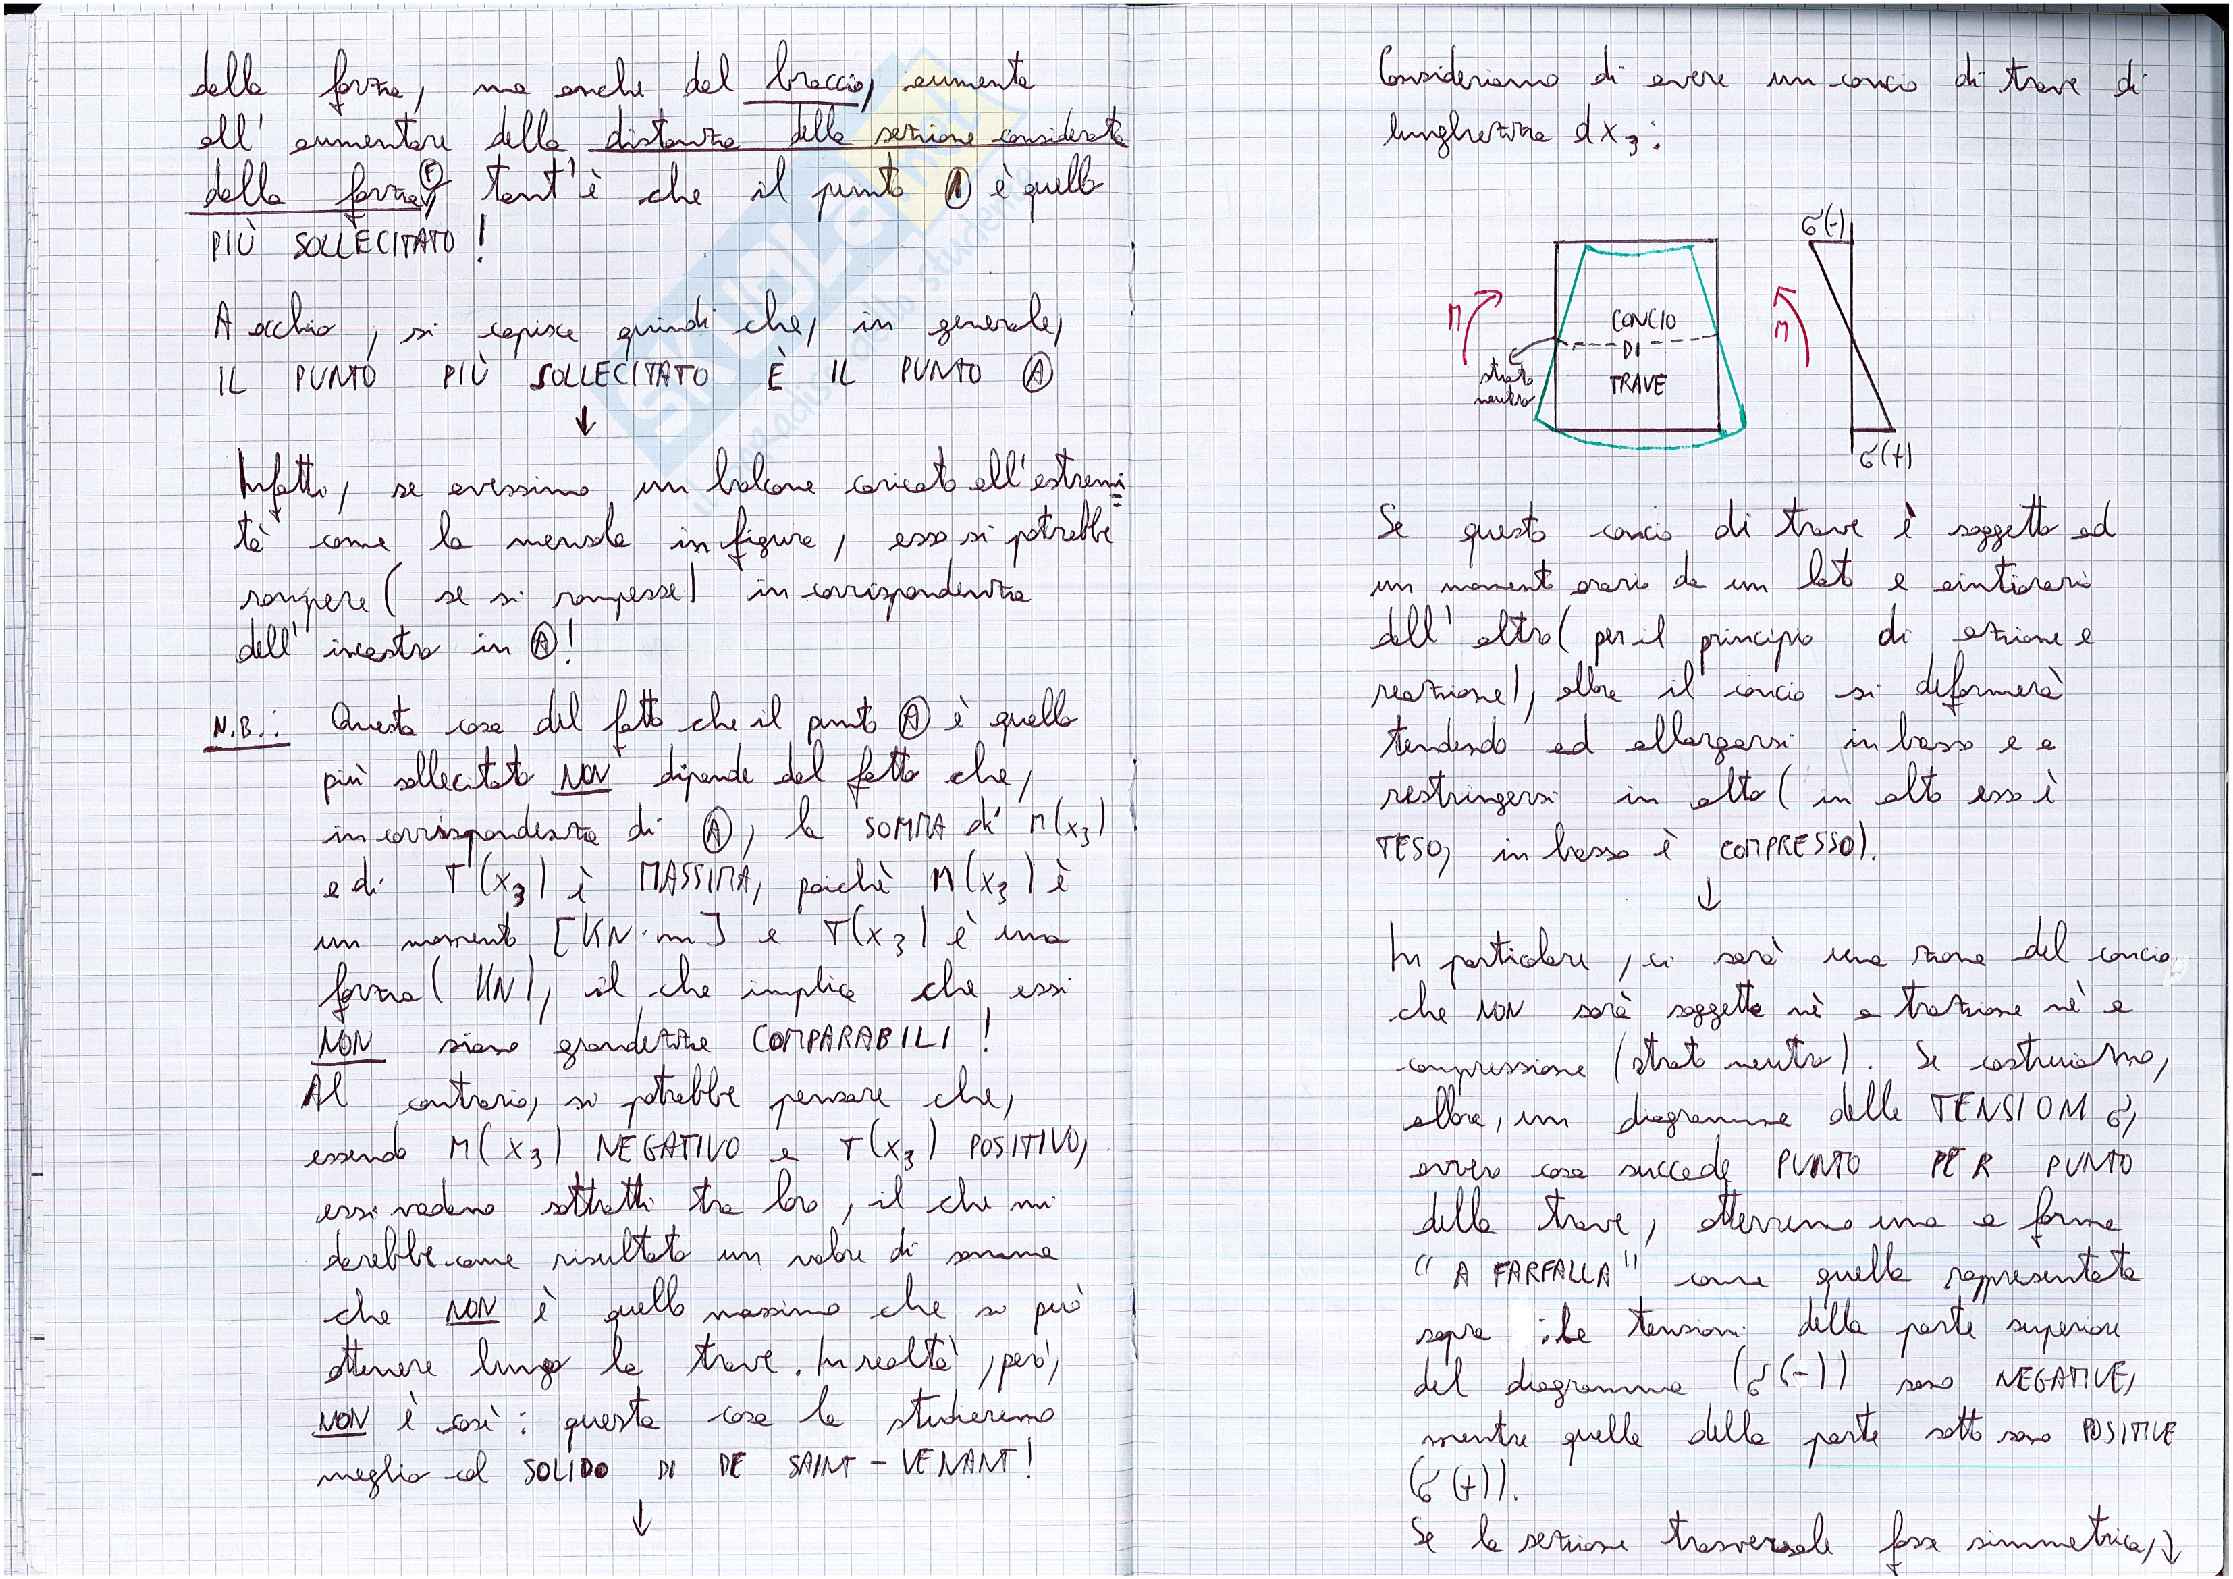 della forza, ma anche dal braccio, aumenta
all'aumentare della distanza della sezione considerata
dalla forza F, tant'è che il punto A è quello
PIÙ SOLLECITATO!
A occhio, si capisce quindi che, in generale,
IL PUNTO PIÙ SOLLECITATO È IL PUNTO A
↓
Infatti, se avessimo un balcone caricato all'estremi
tà come la mensola in figura, esso si potrebbe
rompere (se si rompesse) in corrispondenza
dell'incastro in A!
N.B.: Questa cosa del fatto che il punto A è quello
più sollecitato NON dipende dal fatto che,
in corrispondenza di A, la SOMMA di M(x3)
e di T(x3) è MASSIMA, poichè M(x3) è
un momento [KN·m] e T(x3) è una
forza (KN), il che implica che essi
NON siano grandezze COMPARABILI!
Al contrario, si potrebbe pensare che,
essendo M(x3) NEGATIVO e T(x3) POSITIVO,
essi vadano sottratti tra loro, il che mi
darebbe come risultato un valore di somma
che NON è quello massimo che si può
ottenere lungo la trave. In realtà, però,
NON è così: questa cosa la studieremo
meglio col SOLIDO DI DE SAINT-VENANT!
↓
Consideriamo di avere un concio di trave di
lunghezza dx3:
σ(-)
M
CONCIO
DI
TRAVE
M
strato
neutro
σ(+)
Se questo concio di trave è soggetto ad
un momento orario da un lato e antiorario
dall'altro (per il principio di azione e
reazione), allora il concio si deformerà
tendendo ad allargarsi in basso e a
restringersi in alto (in alto esso è
TESO, in basso è COMPRESSO).
↓
In particolare, ci sarà una zona del concio
che NON sarà soggetta nè a trazione nè a
compressione (strato neutro). Se costruiamo,
allora, un diagramma delle TENSIONI σ,
ovvero cosa succede PUNTO PER PUNTO
della trave, otterremo una a forma
"A FARFALLA" come quella rappresentata
sopra: le tensioni della parte superiore
del diagramma (σ(-)) sono NEGATIVE,
mentre quelle della parte sotto sono POSITIVE
(σ(+)).
Se la sezione trasversale fosse simmetrica, ↓
SKUOLA.net